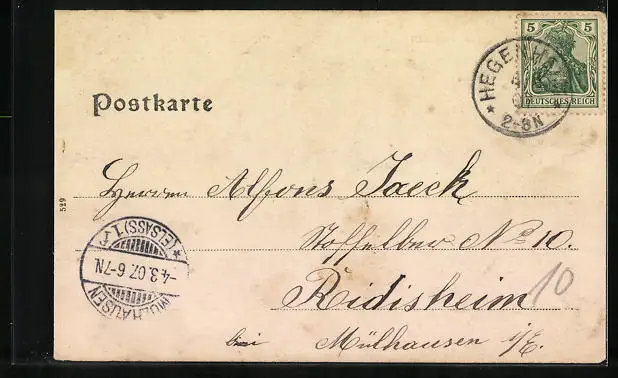 5 5
DEUTSCHES REICH
HEGENHEIM
2-3N
Postkarte
529
Herrn Alfons Jaeck
Stoffelber No 10.
Ridisheim
10
bei Mülhausen i/E.
MÜLHAUSEN
-4.3.07. 6-7N.
* (ELSASS) 1 r